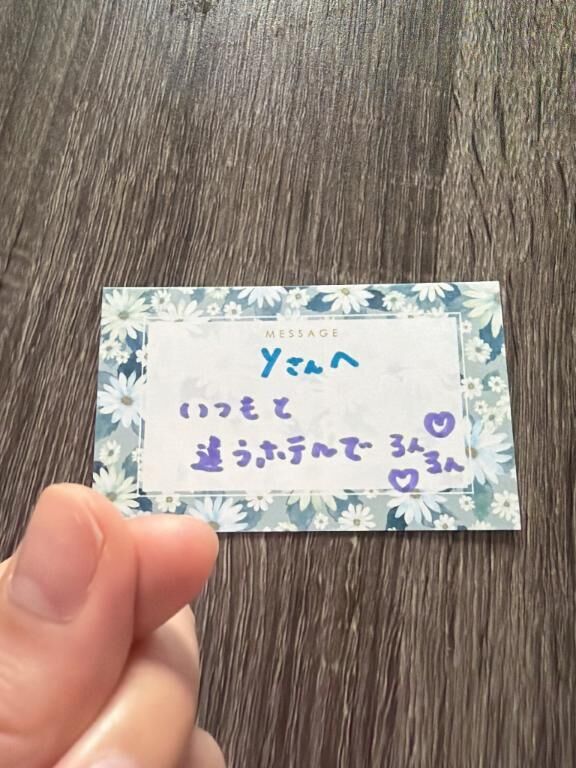 MESSAGE
Yさんへ
いつもと
違うホテルで るんるん